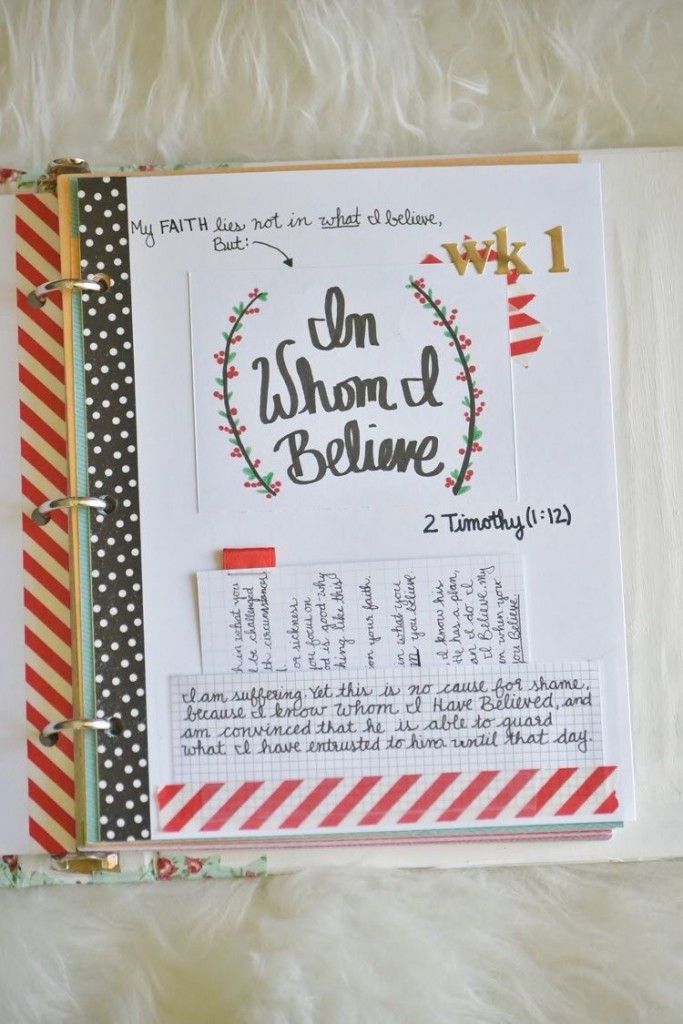 My FAITH lies not in what I believe,
But:
wk 1
In
Whom I
Believe
2 Timothy (1:12)
h in what you
l be challenged
th circumstances
or sickness
you focus on
d is good why
hing like this
on your faith.
in what you
m you believe
I know his
He has a plan,
an I do. I
I Believe. My
en when you
you Believe
I am suffering. Yet this is no cause for shame,
because I know Whom I Have Believed, and
am convinced that he is able to guard
what I have entrusted to him until that day.